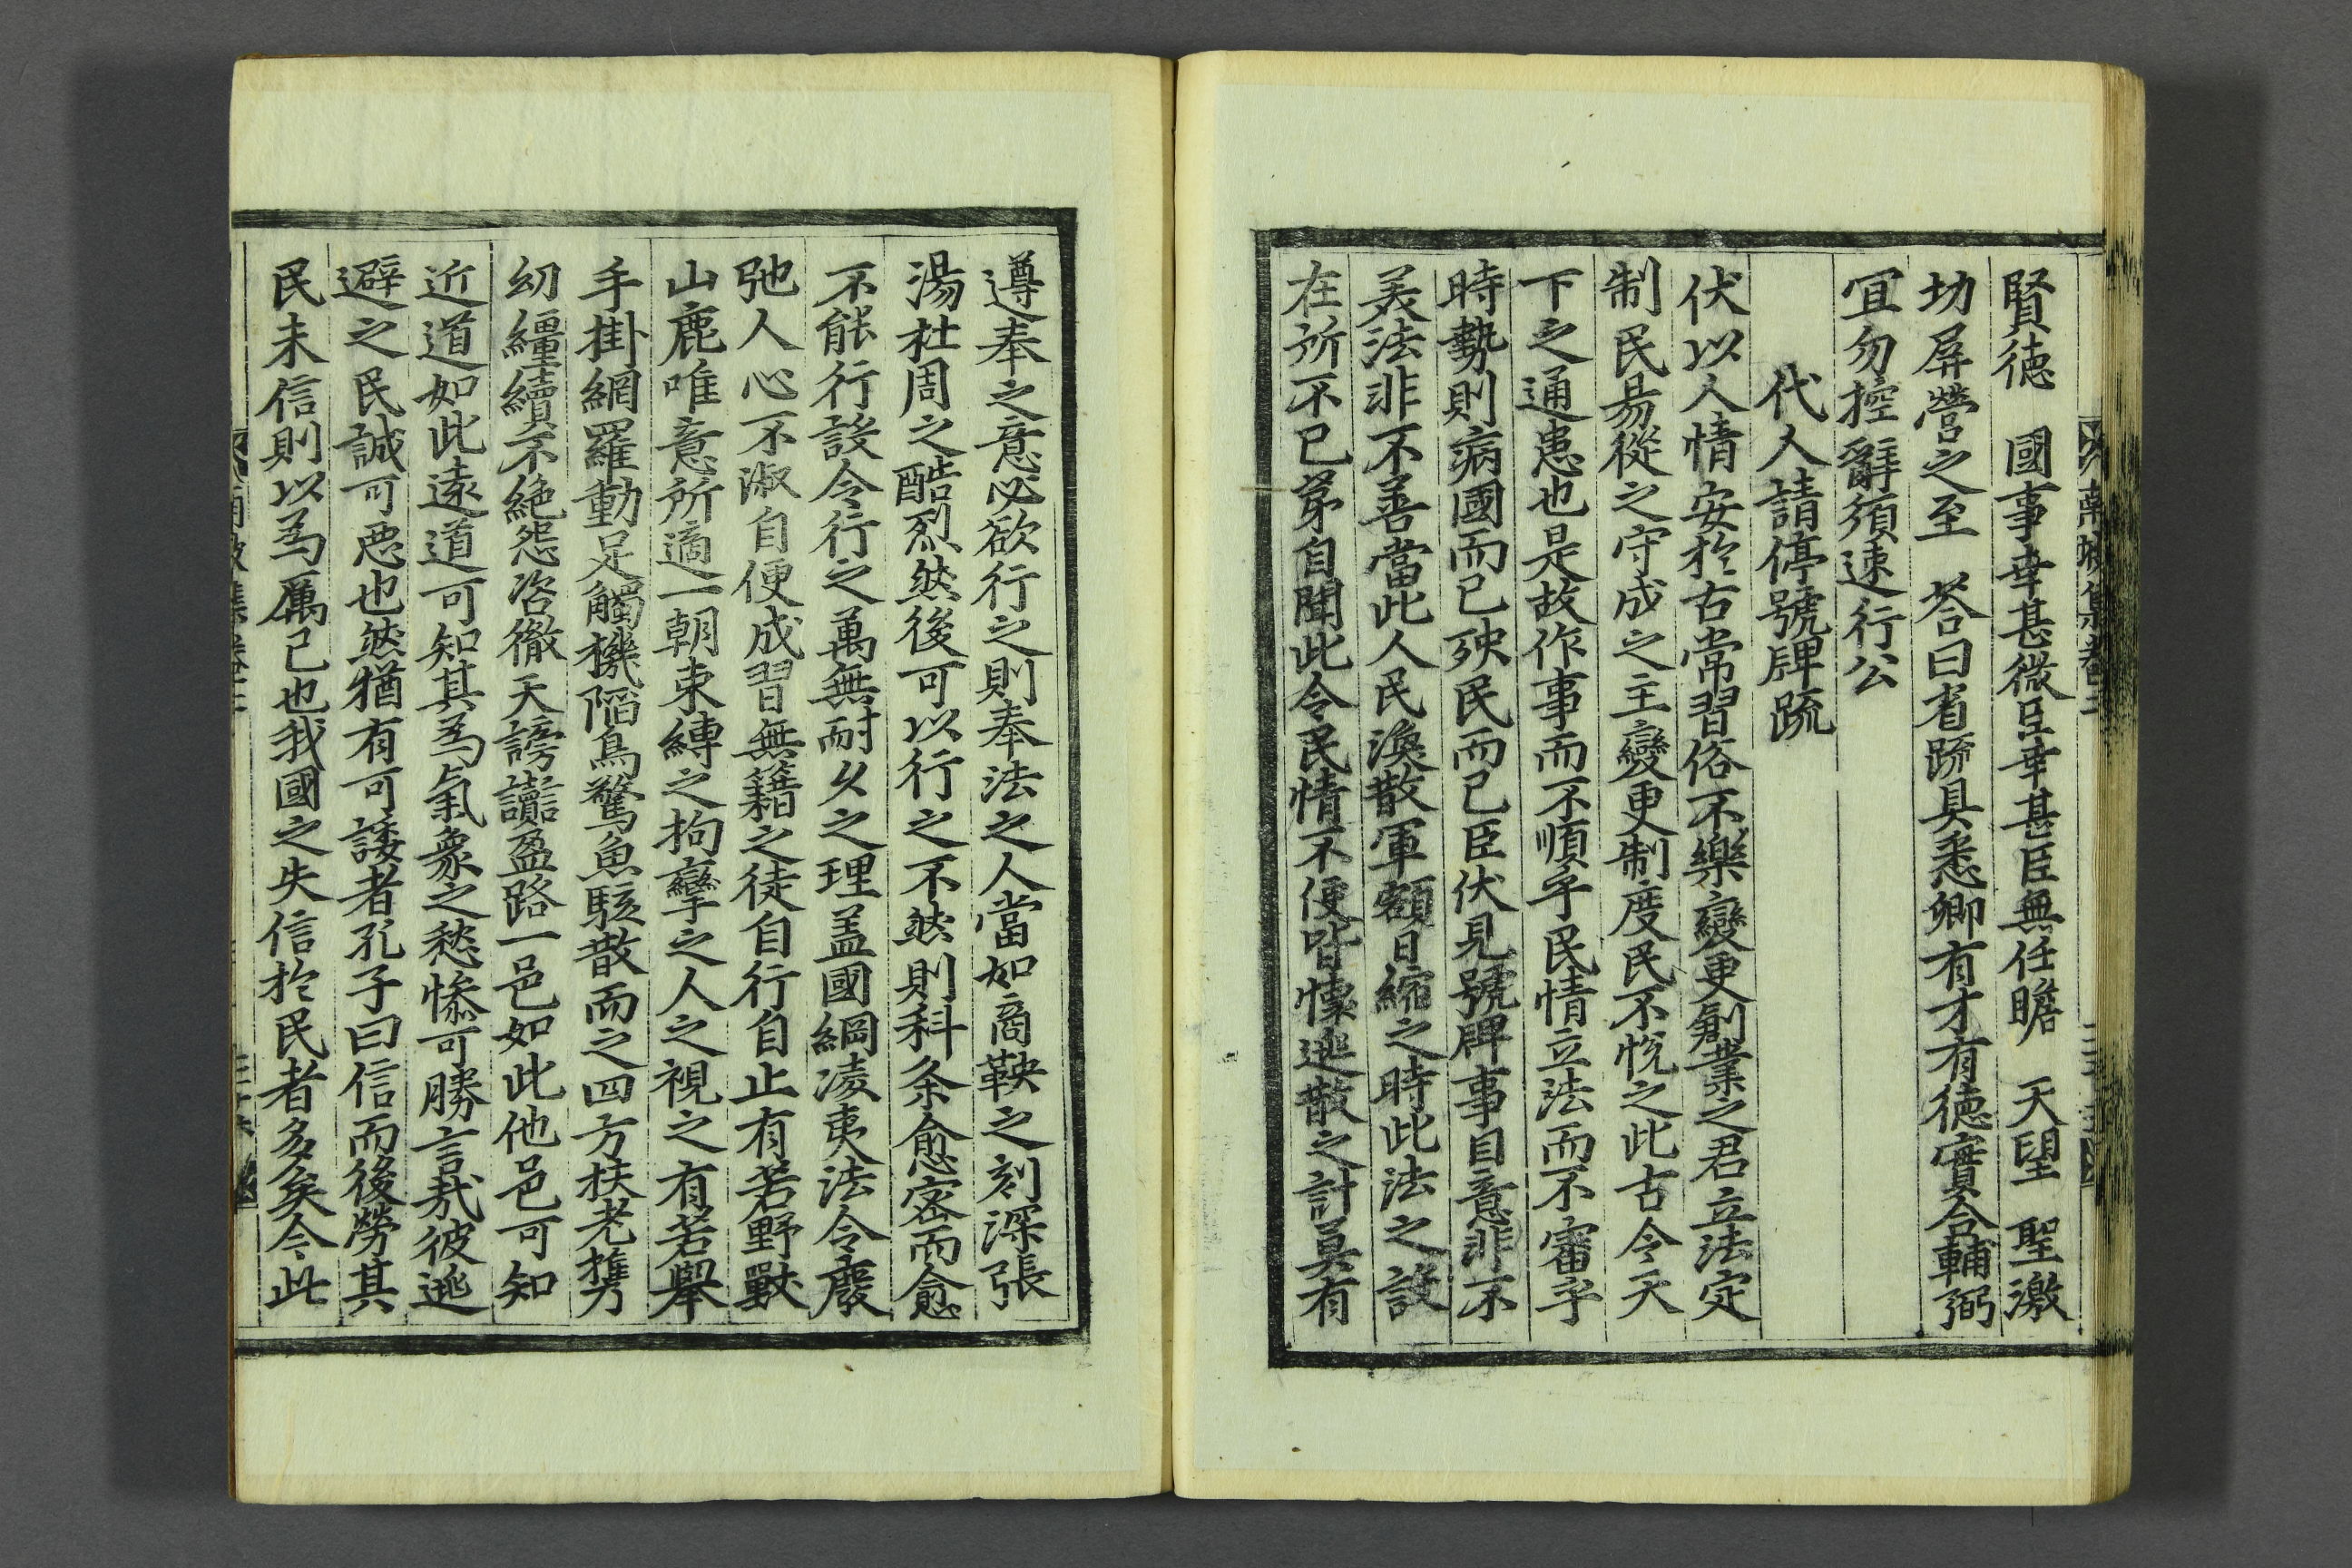 賢德 國事幸甚微臣幸甚臣無任瞻 天望 聖激
切屏營之至 答曰省疏具悉卿有才有德實合輔弼
宜勿控辭須速行公
代人請停號牌疏
伏以人情安於古常習俗不樂變更創業之君立法定
制民易從之守成之主變更制度民不悅之此古今天
下之通患也是故作事而不順乎民情立法而不審乎
時勢則病國而已殃民而已臣伏見號牌事目意非不
美法非不善當此人民渙散軍額日縮之時此法之設
在所不已第自聞此令民情不便皆懷逃散之計莫有
遵奉之意必欲行之則奉法之人當如商鞅之刻深張
湯杜周之酷烈然後可以行之不然則科条愈密而愈
不能行設令行之萬無耐久之理盖國綱凌夷法令廢
弛人心不淑自便成習無籍之徒自行自止有若野獸
山鹿唯意所適一朝束縛之拘攣之人之視之有若舉
手掛網羅動足觸機陷鳥驚魚駭散而之四方扶老携
幼繦續不絶怨咨徹天謗讟盈路一邑如此他邑可知
近道如此遠道可知其為氣象之愁慘可勝言哉彼逃
避之民誠可惡也然猶有可諉者孔子曰信而後勞其
民未信則以為厲己也我國之失信於民者多矣今此